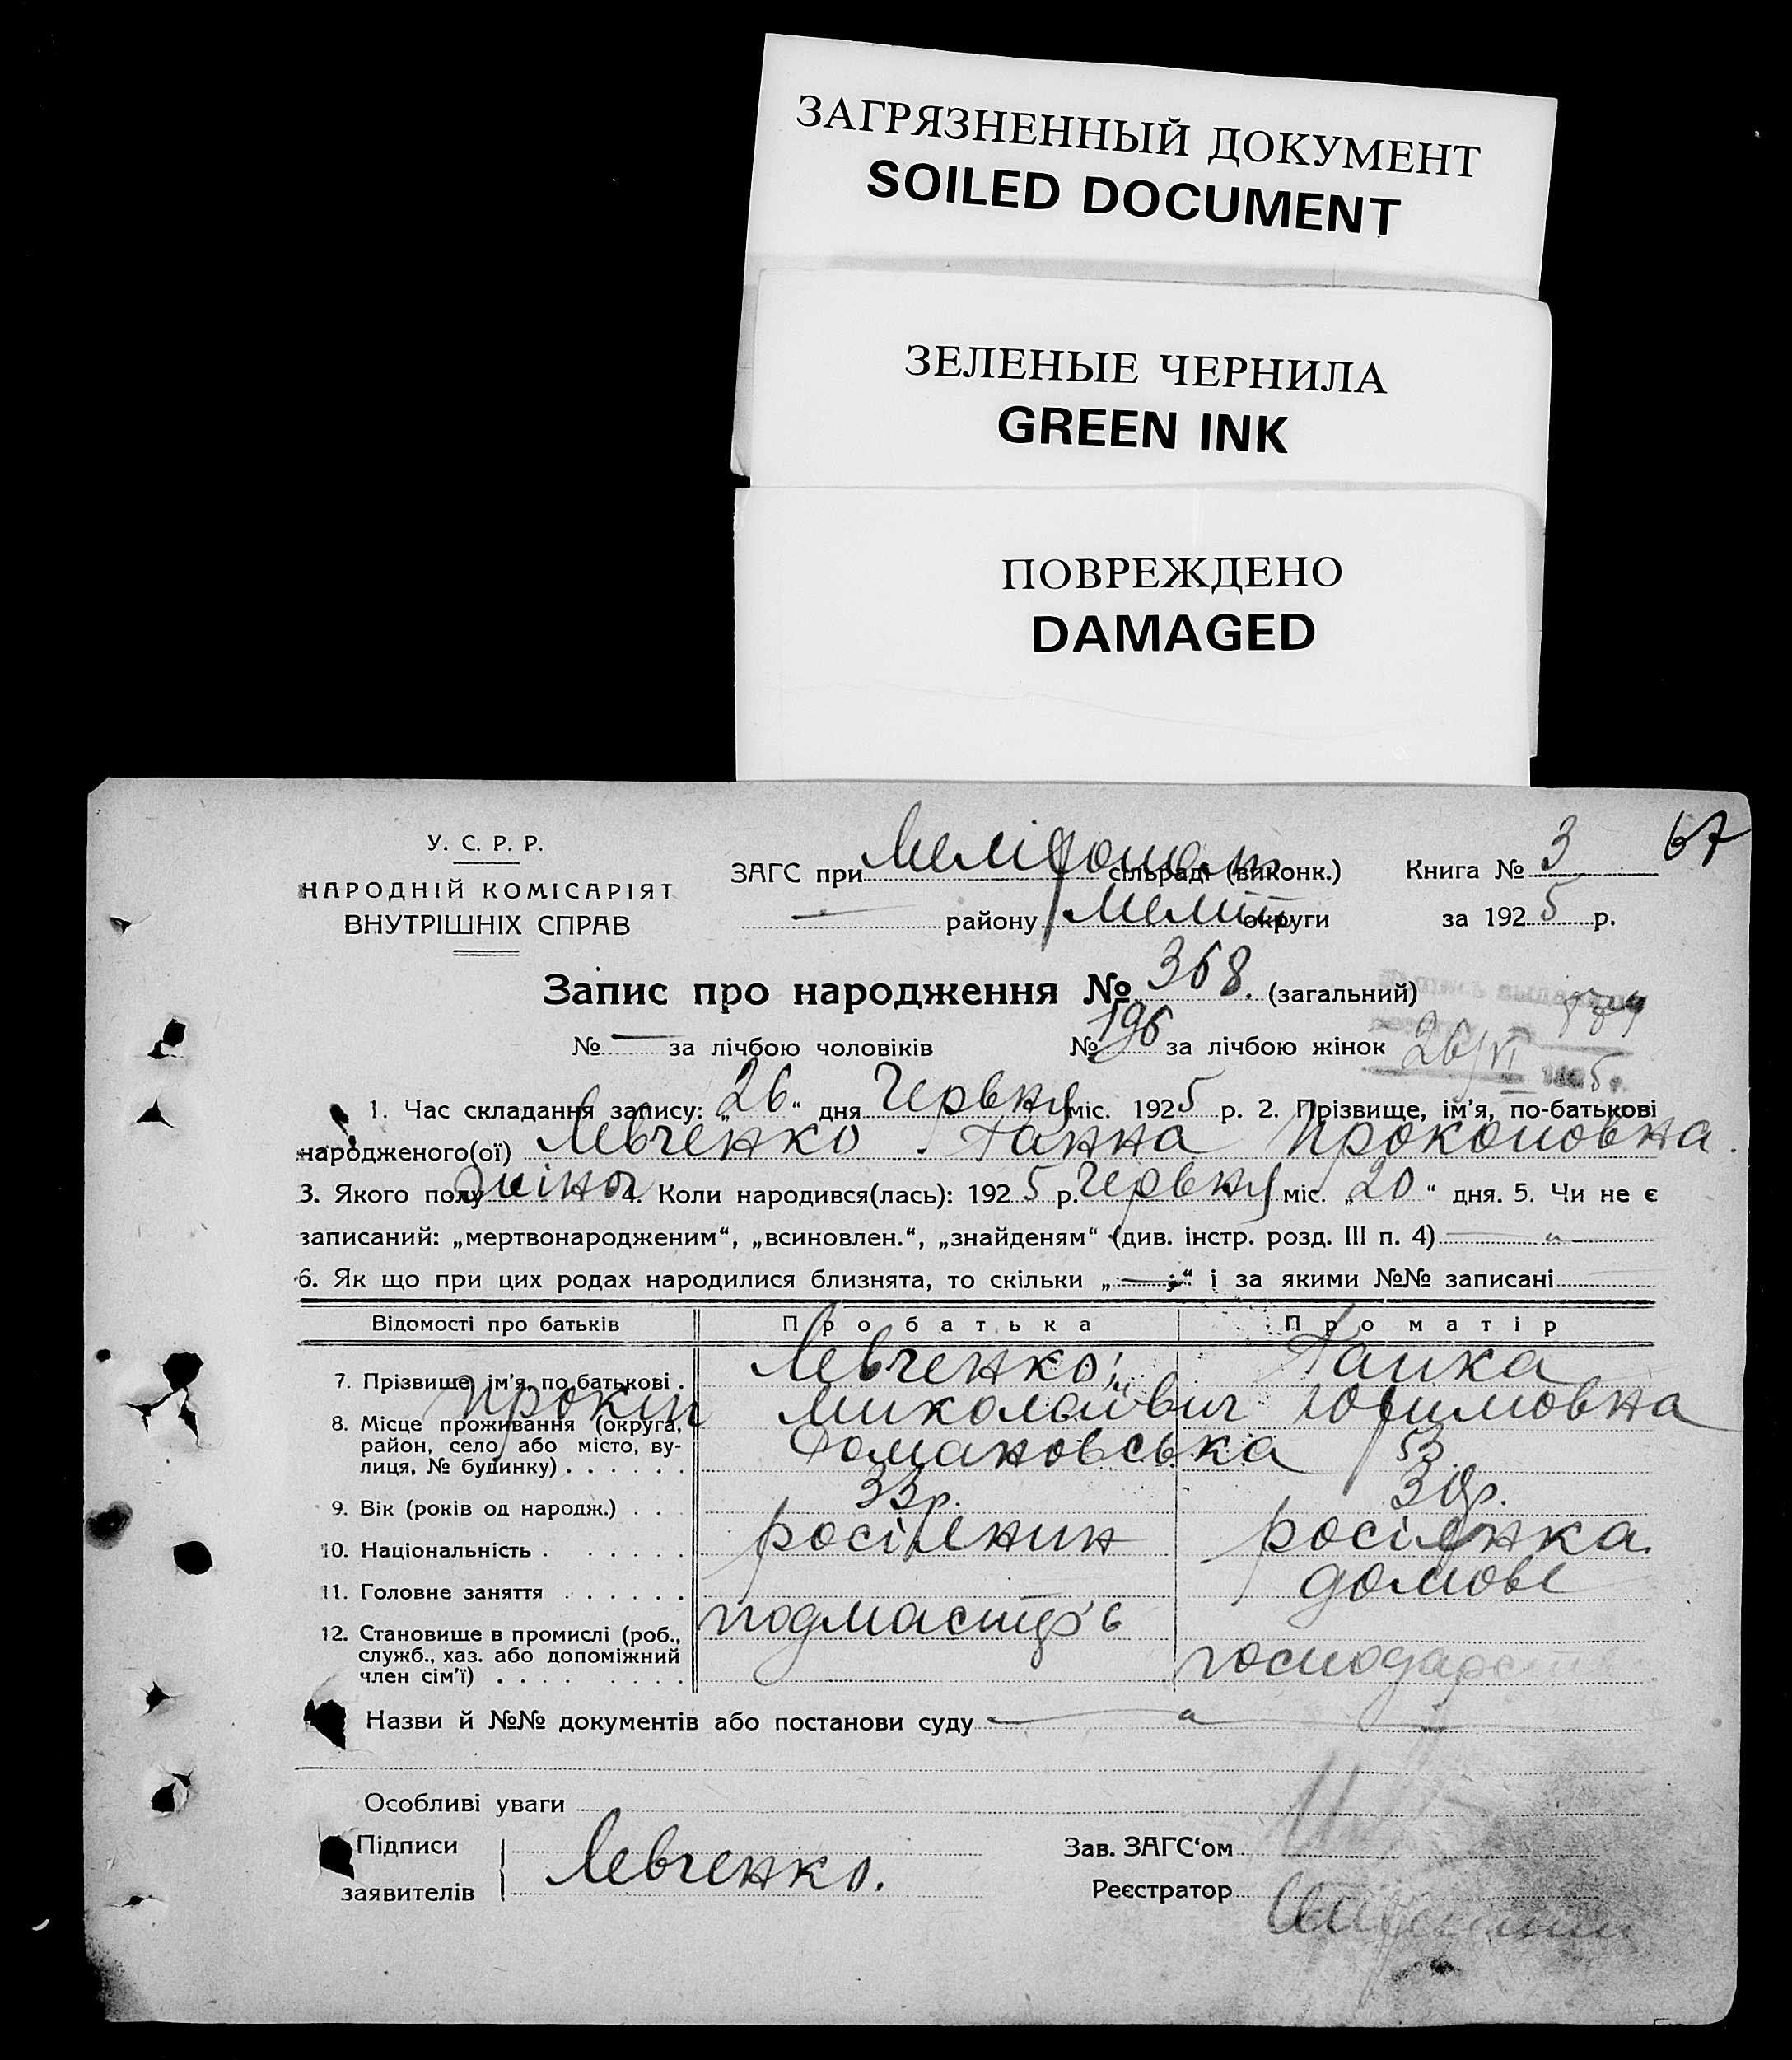 ЗАГРЯЗНЕННЫЙ ДОКУМЕНТ
SOILED DOCUMENT
ЗЕЛЕНЫЕ ЧЕРНИЛА
GREEN INK
ПОВРЕЖДЕНО
DAMAGED
67
У. С. Р. Р.
НАРОДНІЙ КОМІСАРІЯТ
ВНУТРІШНІХ СПРАВ
ЗАГС при сільраді (виконк.) Книга № 3
— району Меліт округи за 1925 р.
Запис про народження № 368. (загальний)
№ — за лічбою чоловіків № 196 за лічбою жінок
26/VI
1. Час складання запису: „26“ дня Червня міс. 1925 р. 2. Прізвище, ім'я, по-батькові
народженого(ої) Левченко Ганна Прокоповна.
3. Якого полу жіноч 4. Коли народився(лась): 1925 р. Червня міс. „20“ дня. 5. Чи не є
записаний: „мертвонародженим“, „всиновлен.“, „знайденям“ (див. інстр. розд. III п. 4) — „ —
6. Як що при цих родах народилися близнята, то скільки „—“ і за якими №№ записані
Відомості про батьків Про батька Про матір
7. Прізвище, ім'я, по батькові . Левченко; Ганка
Прокіп Миколаївич Юхимовна
8. Місце проживання (округа,
район, село, або місто, ву-
лиця, № будинку) . . . . . . Романовська 53
9. Вік (років од народж.) . . 33р. 30р.
10. Національність . . . . . . росіянин росіянка.
11. Головне заняття . . . . . . домове
12. Становище в промислі (роб., подмастер'є
служб., хаз. або допоміжний господарств
член сім'ї) . . . . . . . .
Назви й №№ документів або постанови суду — „ —
Особливі уваги
Підписи
заявителів Левченко.
Зав. ЗАГС'ом
Реєстратор